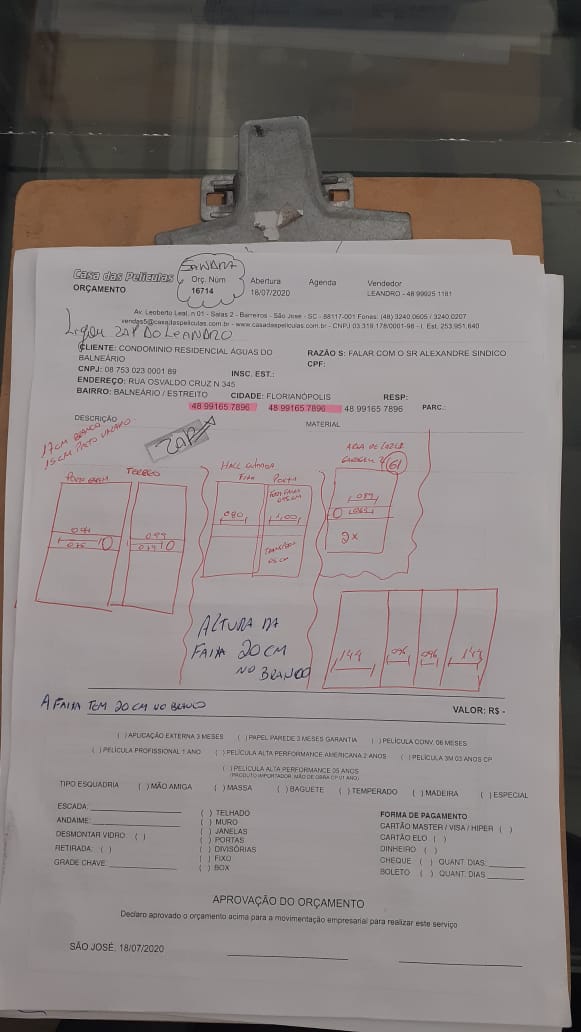 SANDRA
Casa das Películas
ORÇAMENTO
Orç. Núm
16714
Abertura
18/07/2020
Agenda
Vendedor
LEANDRO - 48 99625 1181
Av. Leoberto Leal, n 01 - Salas 2 - Barreiros - São José - SC - 88117-001 Fones: (48) 3240.0605 / 3240.0207
vendas5@casadaspeliculas.com.br - www.casadaspeliculas.com.br - CNPJ 03.319.178/0001-98 - I. Est. 253.951.640
Ligou ZAP DO LEANDRO
CLIENTE: CONDOMINIO RESIDENCIAL ÁGUAS DO
BALNEÁRIO
RAZÃO S: FALAR COM O SR ALEXANDRE SINDICO
CPF:
CNPJ: 08 753 023 0001 89
INSC. EST.:
ENDEREÇO: RUA OSVALDO CRUZ N 345
BAIRRO: BALNEÁRIO / ESTREITO
CIDADE: FLORIANÓPOLIS
RESP:
48 99165 7896
48 99165 7896
48 99165 7896
PARC.:
DESCRIÇÃO
MATERIAL
17CM BRANCO
15CM PRETO
ZAP
TERREO
HALL
FIXO
PORTA
AREA DE LAZER
61
080
1,00
2X
ALTURA DA
FAIXA 20CM
NO BRANCO
144
096
096
A FAIXA TEM 20CM NO BRANCO
VALOR: R$ -
( ) APLICAÇÃO EXTERNA 3 MESES
( ) PAPEL PAREDE 3 MESES GARANTIA
( ) PELÍCULA CONV. 06 MESES
( ) PELÍCULA PROFISSIONAL 1 ANO
( ) PELÍCULA ALTA PERFORMANCE AMERICANA 2 ANOS
( ) PELÍCULA 3M 03 ANOS CP
( ) PELÍCULA ALTA PERFORMANCE 05 ANOS
(PRODUTO IMPORTADOR, MÃO DE OBRA CP 01 ANO)
TIPO ESQUADRIA
( ) MÃO AMIGA
( ) MASSA
( ) BAGUETE
( ) TEMPERADO
( ) MADEIRA
( ) ESPECIAL
ESCADA:
ANDAIME:
DESMONTAR VIDRO ( )
RETIRADA: ( )
GRADE CHAVE:
( ) TELHADO
( ) MURO
( ) JANELAS
( ) PORTAS
( ) DIVISÓRIAS
( ) FIXO
( ) BOX
FORMA DE PAGAMENTO
CARTÃO MASTER / VISA / HIPER ( )
CARTÃO ELO ( )
DINHEIRO ( )
CHEQUE ( ) QUANT. DIAS:
BOLETO ( ) QUANT. DIAS
APROVAÇÃO DO ORÇAMENTO
Declaro aprovado o orçamento acima para a movimentação empresarial para realizar este serviço
SÃO JOSÉ: 18/07/2020